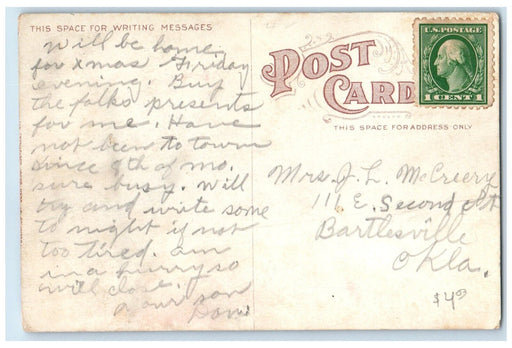 THIS SPACE FOR WRITING MESSAGES
Will be home
for Xmas Friday
evening. Buy
the folks presents
for me. Have
not been to town
since 8th of mo.
sure busy. Will
try and write some
to night if not
too tired. am
in a hurry so
will close.
Your son
POST
CARD
THIS SPACE FOR ADDRESS ONLY
U.S. POSTAGE
1 CENT 1
Mrs. J. L. McCreery
111 E. Second St
Bartlesville
Okla.